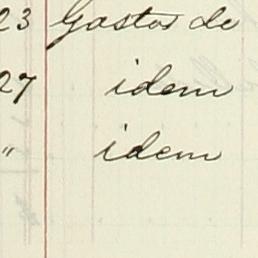 23 Gastos de
27 idem
" idem